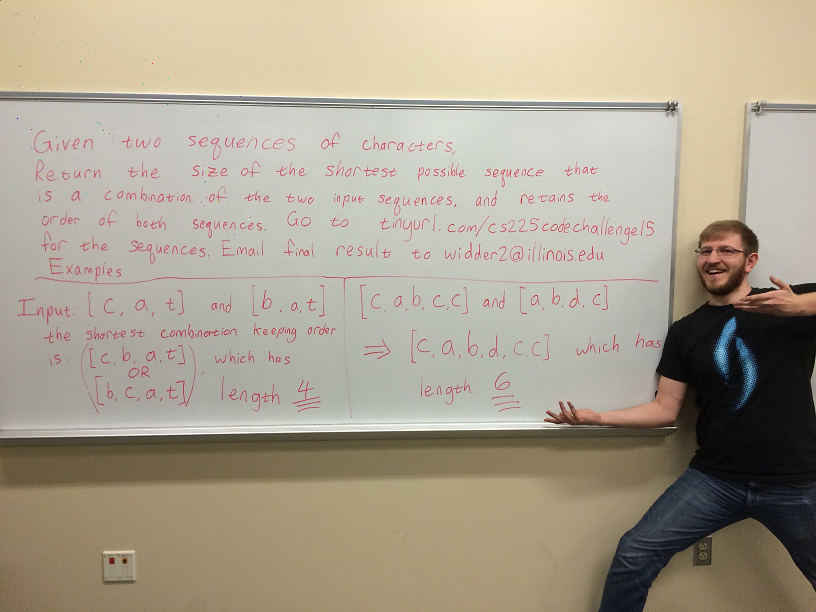 Given two sequences of characters,
Return the size of the shortest possible sequence that
is a combination of the two input sequences, and retains the
order of both sequences. Go to tinyurl.com/cs225codechallenge15
for the sequences. Email final result to widder2@illinois.edu
Examples
Input: [c, a, t] and [b, a, t]
the shortest combination keeping order
is: ([c, b, a, t] OR [b, c, a, t]), which has
length 4
[c, a, b, c, c] and [a, b, d, c]
⇒ [c, a, b, d, c, c] which has
length 6